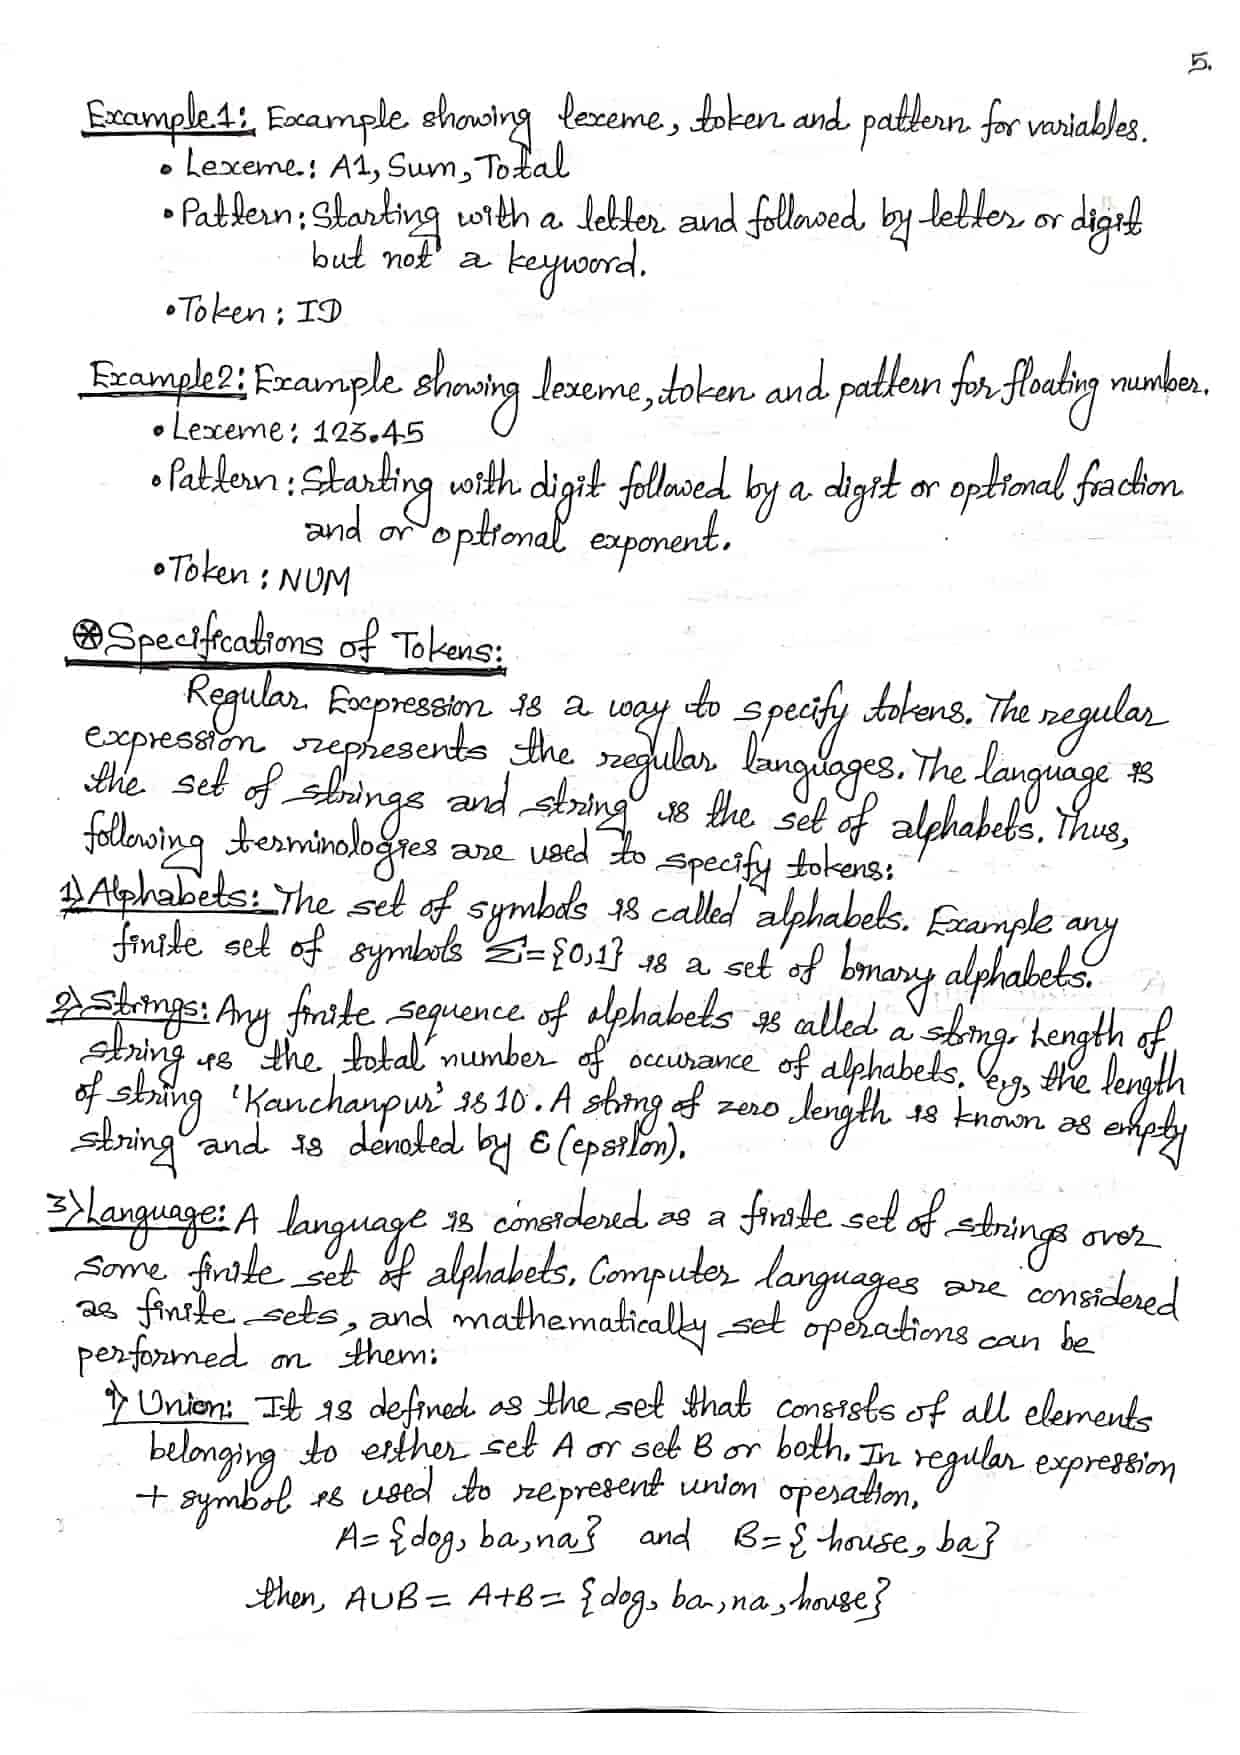 5.
Example1: Example showing lexeme, token and pattern for variables.
• Lexeme: A1, Sum, Total
• Pattern: Starting with a letter and followed by letter or digit
but not a keyword.
• Token: ID
Example2: Example showing lexeme, token and pattern for floating number.
• Lexeme: 123.45
• Pattern: Starting with digit followed by a digit or optional fraction
and or optional exponent.
• Token: NUM
⊛ Specifications of Tokens:
Regular Expression is a way to specify tokens. The regular
expression represents the regular languages. The language is
the set of strings and string is the set of alphabets. Thus,
following terminologies are used to specify tokens:
1) Alphabets: The set of symbols is called alphabets. Example any
finite set of symbols Σ={0,1} is a set of binary alphabets.
2) Strings: Any finite sequence of alphabets is called a string. Length of
string is the total number of occurance of alphabets. e.g, the length
of string 'Kanchanpur' is 10. A string of zero length is known as empty
string and is denoted by ε (epsilon).
3) Language: A language is considered as a finite set of strings over
some finite set of alphabets. Computer languages are considered
as finite sets, and mathematically set operations can be
performed on them:
i) Union: It is defined as the set that consists of all elements
belonging to either set A or set B or both. In regular expression
+ symbol is used to represent union operation.
A= {dog, ba, na} and B= { house, ba}
then, A∪B = A+B = {dog, ba, na, house}